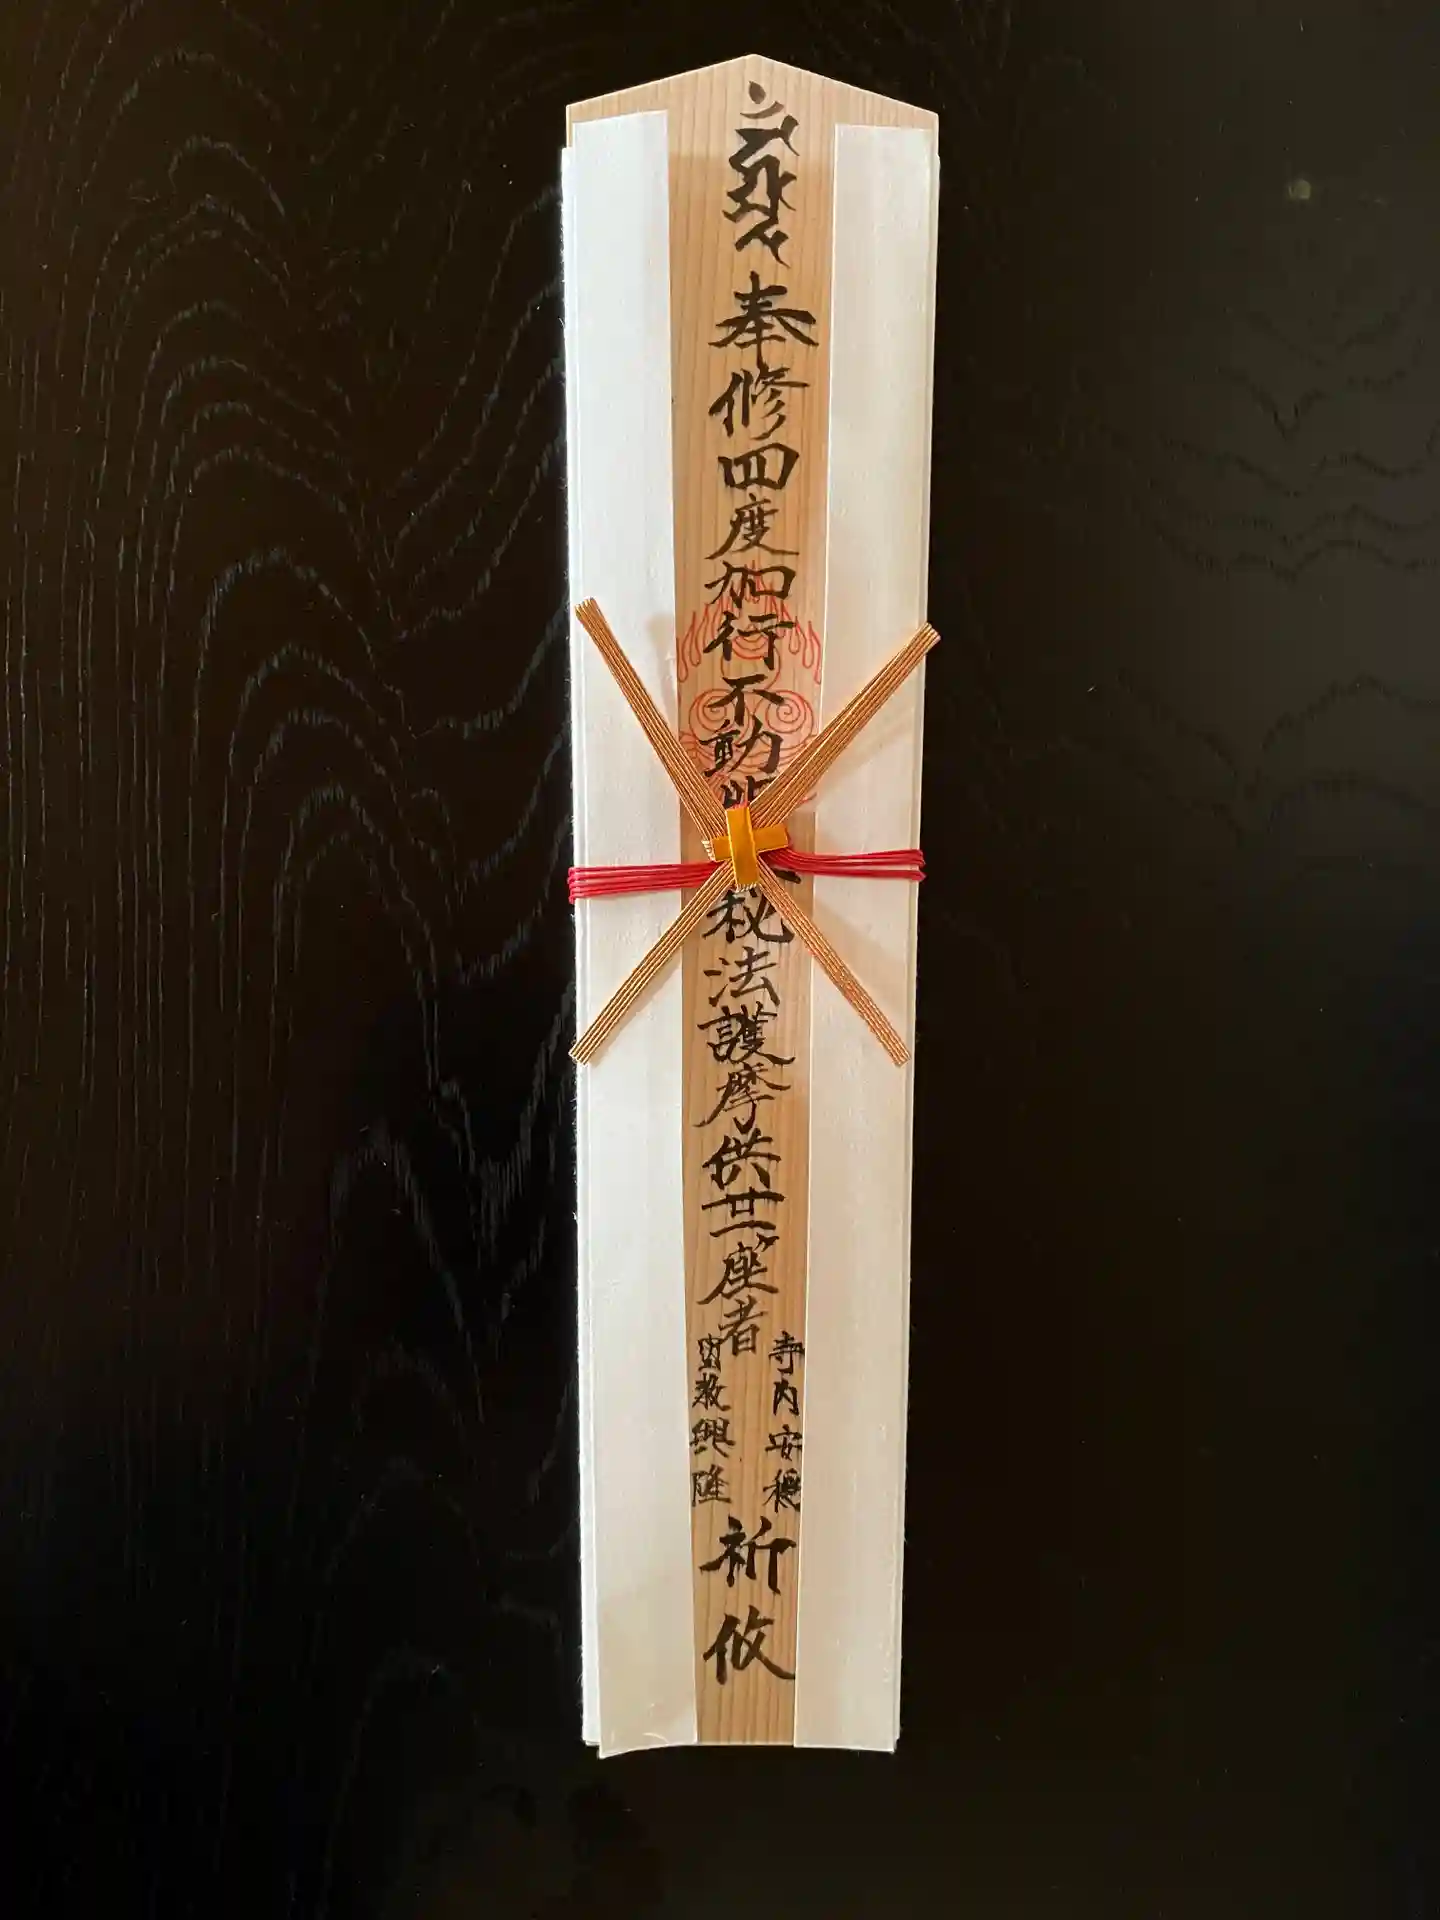 奉修四度加行不動秘法護摩供廿一座者
寺内安穏
密教興隆
祈攸